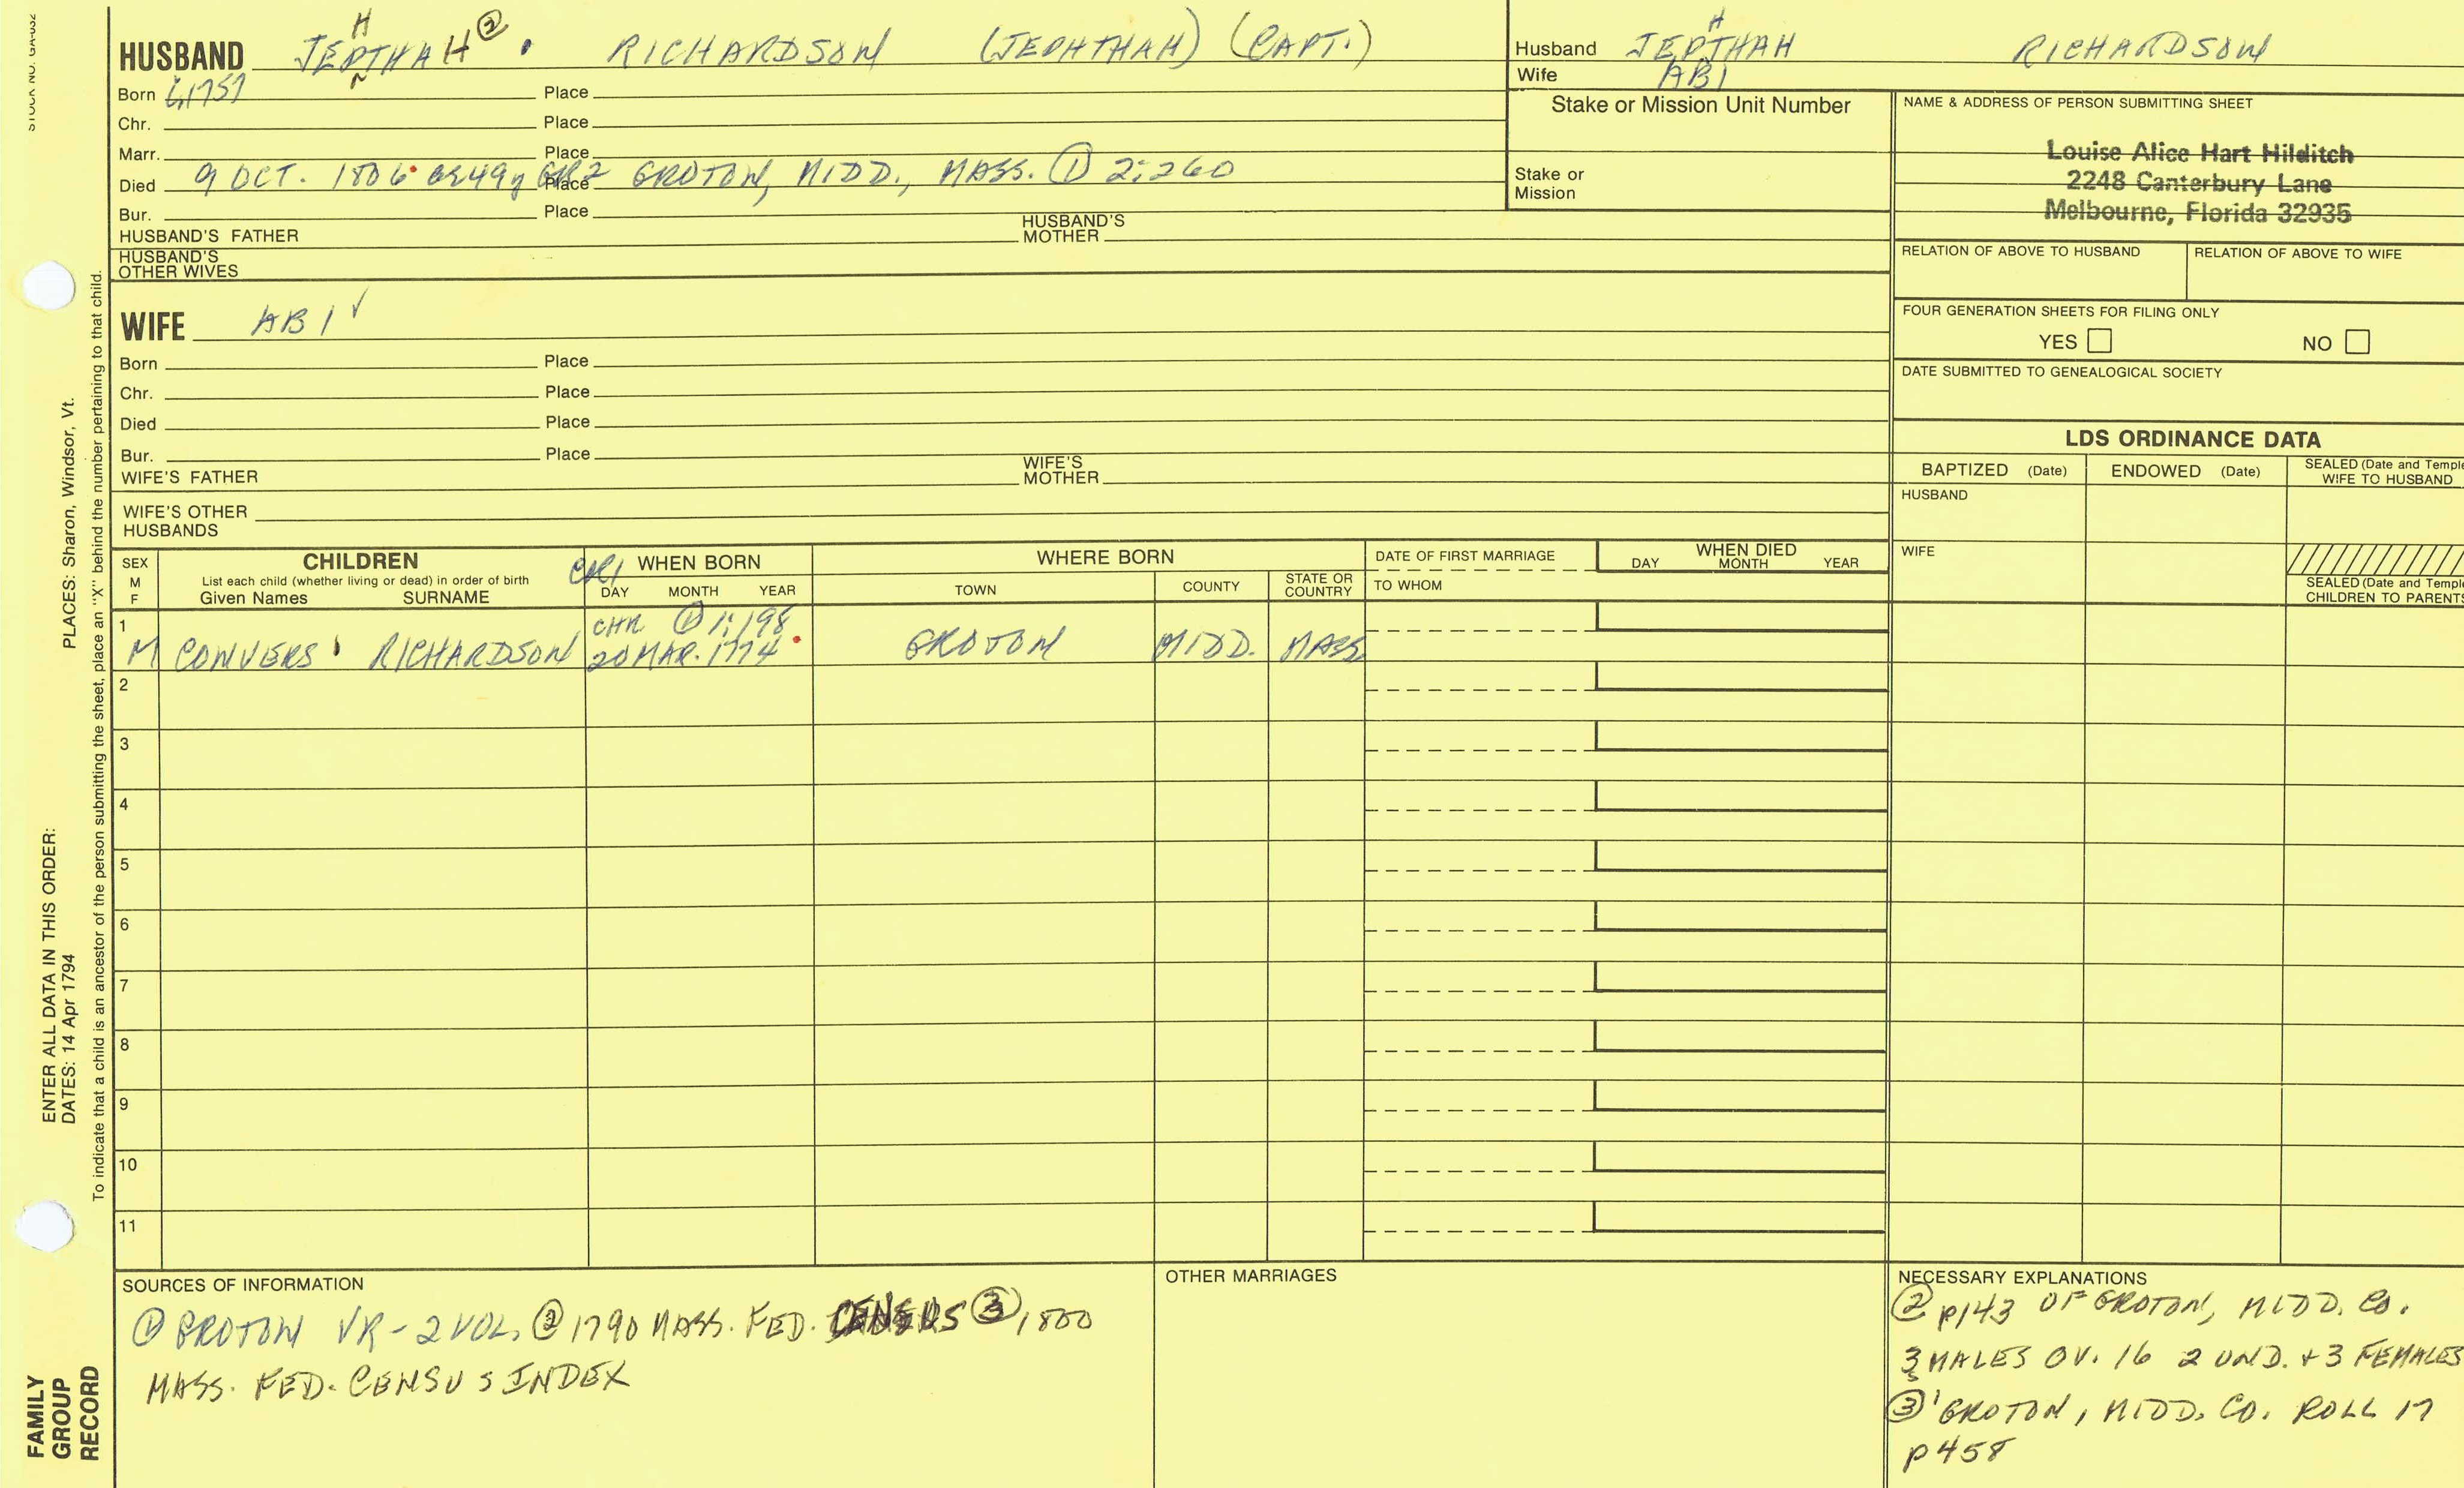 STOCK NO. GA-032
PLACES: Sharon, Windsor, Vt.
ENTER ALL DATA IN THIS ORDER:
DATES: 14 Apr 1794
To indicate that a child is an ancestor of the person submitting the sheet, place an "X" behind the number pertaining to that child.
FAMILY
GROUP
RECORD
H
HUSBAND JEPTHAH ② . RICHARDSON (JEPHTHAH) (CAPT.)
Born 1757 Place
Chr. Place
Marr. Place
Died 9 OCT. 1806 ae 49y GR2 Place GROTON, MIDD., MASS. ① 2:260
Bur. Place
HUSBAND'S FATHER HUSBAND'S MOTHER
HUSBAND'S
OTHER WIVES
H
Husband JEPTHAH RICHARDSON
Wife ABI
Stake or Mission Unit Number
Stake or
Mission
NAME & ADDRESS OF PERSON SUBMITTING SHEET
Louise Alice Hart Hilditch
2248 Canterbury Lane
Melbourne, Florida 32935
RELATION OF ABOVE TO HUSBAND RELATION OF ABOVE TO WIFE
FOUR GENERATION SHEETS FOR FILING ONLY
YES NO
DATE SUBMITTED TO GENEALOGICAL SOCIETY
WIFE ABI ✓
Born Place
Chr. Place
Died Place
Bur. Place
WIFE'S FATHER WIFE'S MOTHER
WIFE'S OTHER
HUSBANDS
LDS ORDINANCE DATA
BAPTIZED (Date) ENDOWED (Date) SEALED (Date and Temple
WIFE TO HUSBAND
HUSBAND
WIFE
SEALED (Date and Temple
CHILDREN TO PARENTS
SEX
M
F
CHILDREN
List each child (whether living or dead) in order of birth
Given Names SURNAME
CR1 WHEN BORN
DAY MONTH YEAR
WHERE BORN
TOWN COUNTY STATE OR
COUNTRY
DATE OF FIRST MARRIAGE
TO WHOM
WHEN DIED
DAY MONTH YEAR
1 CHR. ① 1:198
M CONVERS RICHARDSON 20 MAR. 1774 GROTON MIDD. MASS
2
3
4
5
6
7
8
9
10
11
SOURCES OF INFORMATION
① GROTON VR - 2 VOL. ② 1790 MASS. FED. CENSUS ③ 1800
MASS. FED. CENSUS INDEX
OTHER MARRIAGES
NECESSARY EXPLANATIONS
② p143 OF GROTON, MIDD. CO.
3 MALES OV. 16 2 UND. + 3 FEMALES
③ GROTON, MIDD. CO. ROLL 17
p458